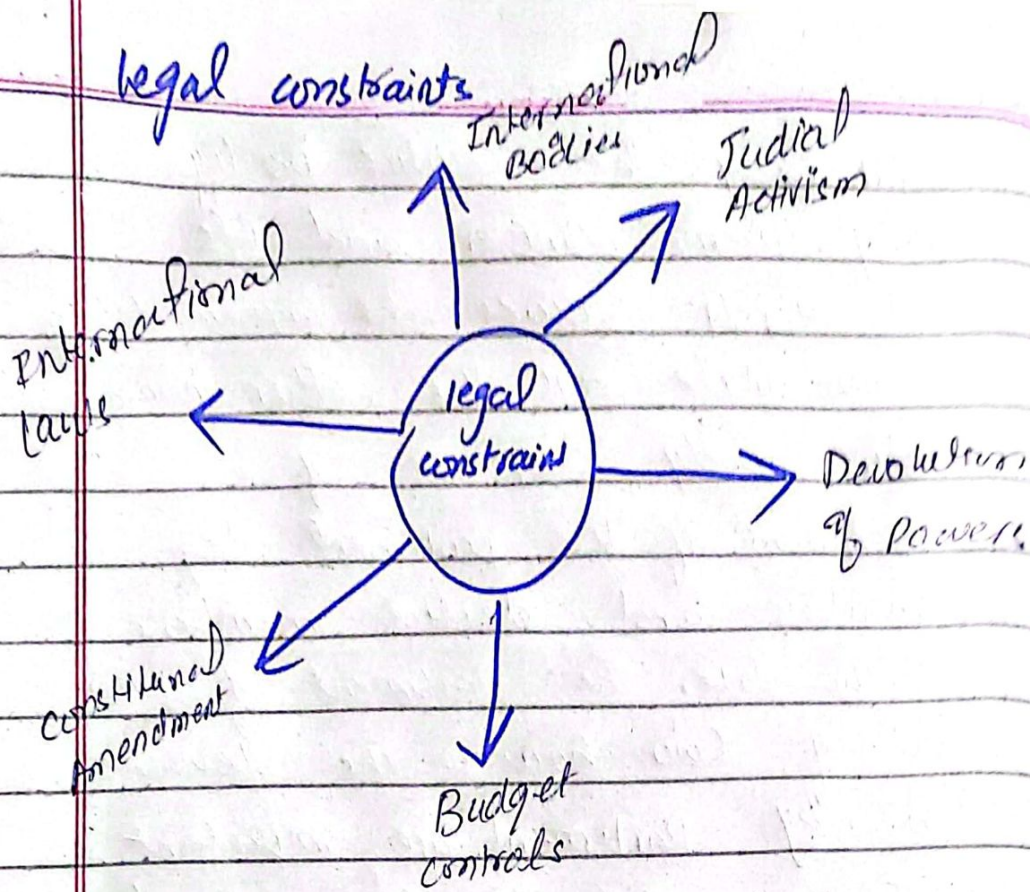 legal constraints
International
Bodies
Judial
Activism
International
laws
legal
constrains
Devolution
of Powers
Constitunal
Amendment
Budget
controls